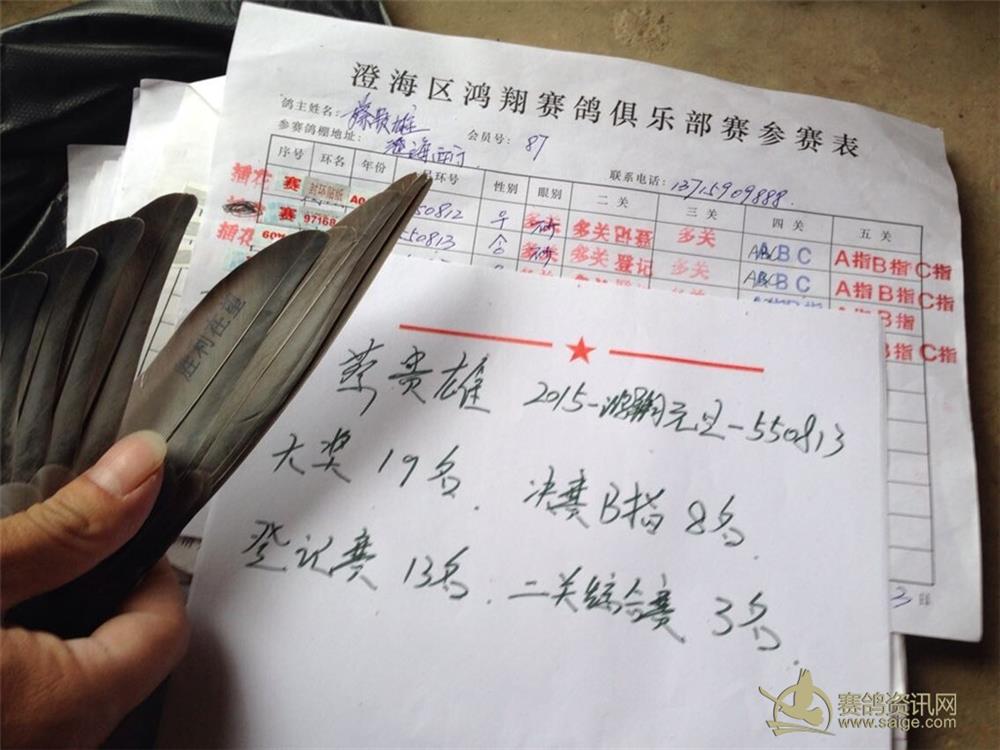 澄海区鸿翔赛鸽俱乐部赛参赛表
鸽主姓名: 蔡贵雄
会员号: 87
参赛鸽棚地址: 澄海西门
联系电话: 13715909888
序号 环名 年份 环号 性别 眼别 二关 三关 四关 五关
插花 赛 封环贴纸 A0 50812 早 砂 多关 多关 多关 ABC A指B指C指
赛 97168
插花 60% 550813 含 砂 多关 多关登记 多关 ABC A指B指C指
A指B指
A指B指C指
胜利在望
蔡贵雄 2015-鸿翔元旦-550813
大奖 19名. 决赛B指 8名
登记赛 13名. 二关综合赛 3名.
赛鸽资讯网
www.saige.com